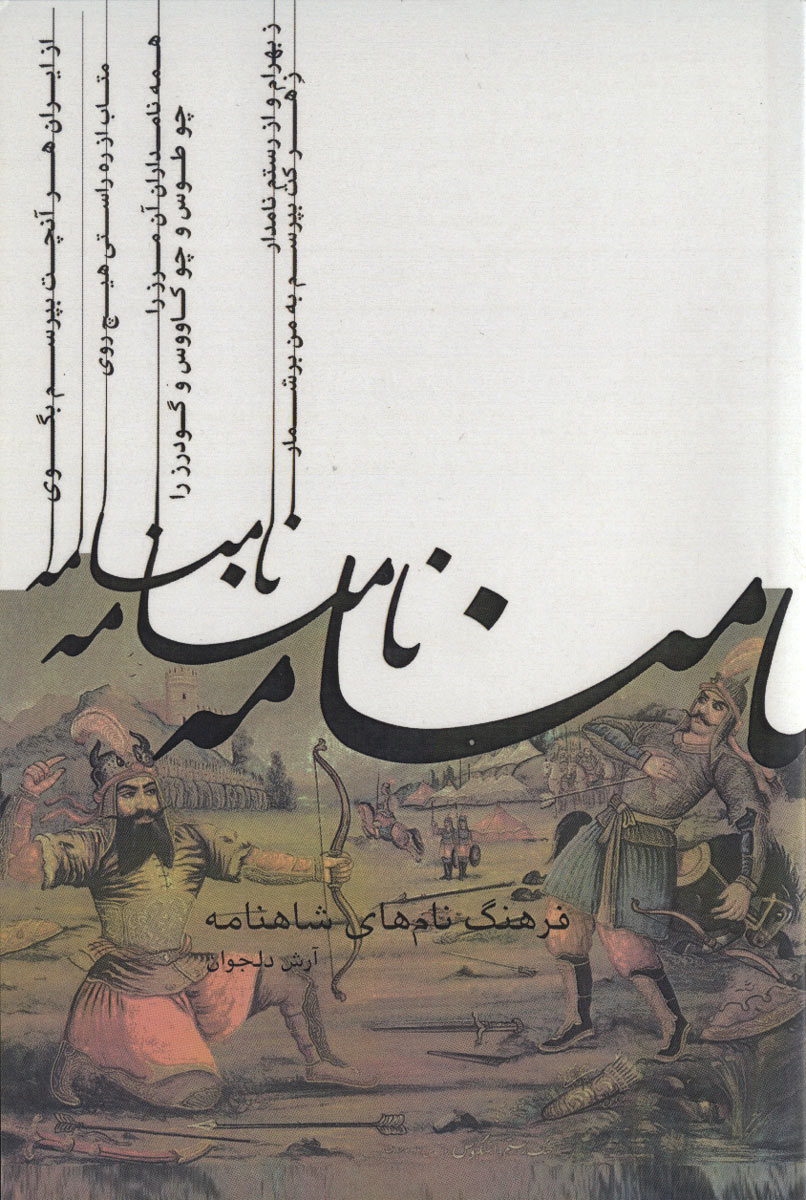 از ایران هر آنچت بپرسم بگوی
متاب از ره راستی هیچ روی
همه نامداران آن مرز را
چو طوس و چو کاووس و گودرز را
ز بهرام و از رستم نامدار
ز هر کت بپرسم به من برشمار
نامنامه
نامنامه
نامنامه
فرهنگ نام‌های شاهنامه
آرش دلجوان